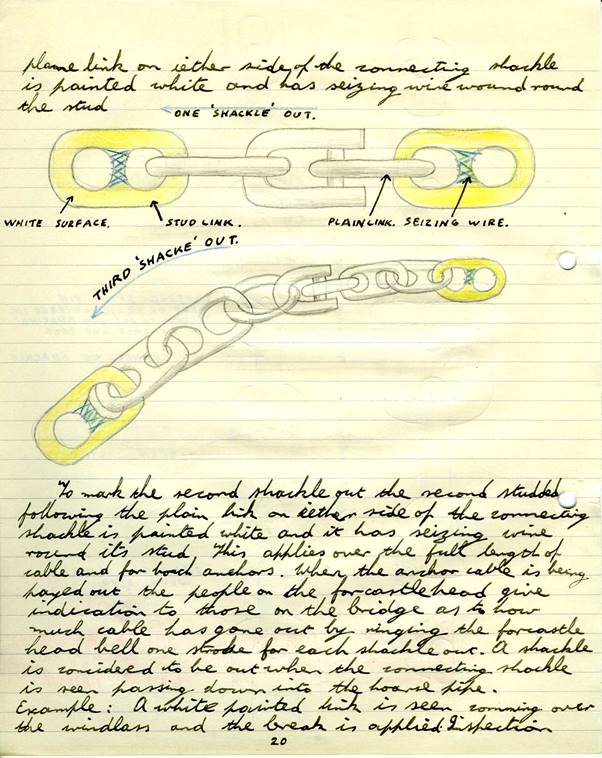 plane link on iether side of the connecting shackle
is painted white and has seizing wire wound round
the stud
ONE 'SHACKLE' OUT.
WHITE SURFACE.
STUD LINK.
PLAIN LINK.
SEIZING WIRE.
THIRD 'SHACKE' OUT.
To mark the second shackle out the second studded
following the plain link on iether side of the connecting
shackle is painted white and it has seizing wire
round its stud. This applies over the full length of
cable and for both anchors. When the anchor cable is being
payed out the people on the forcastlehead give
indication to those on the bridge as to how
much cable has gone out by ringing the forcastle
head bell one stroke for each shackle out. A shackle
is concidered to be out when the connecting shackle
is seen passing down into the hoarse pipe.
Example: A white painted link is seen comming over
the windlass and the break is applied. Inspection
20